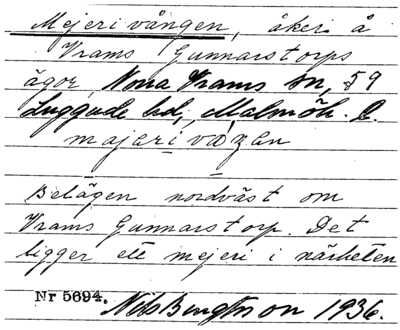 Mejerivången, åker å
Vrams Gunnarstorps
ägor, Norra Vrams sn, § 9
Luggude hd, Malmöh. l.
majarivåŋan
Belägen nordväst om
Vrams Gunnarstorp. Det
ligger ett mejeri i närheten.
Nr 5694. Nils Bengtsson 1936.